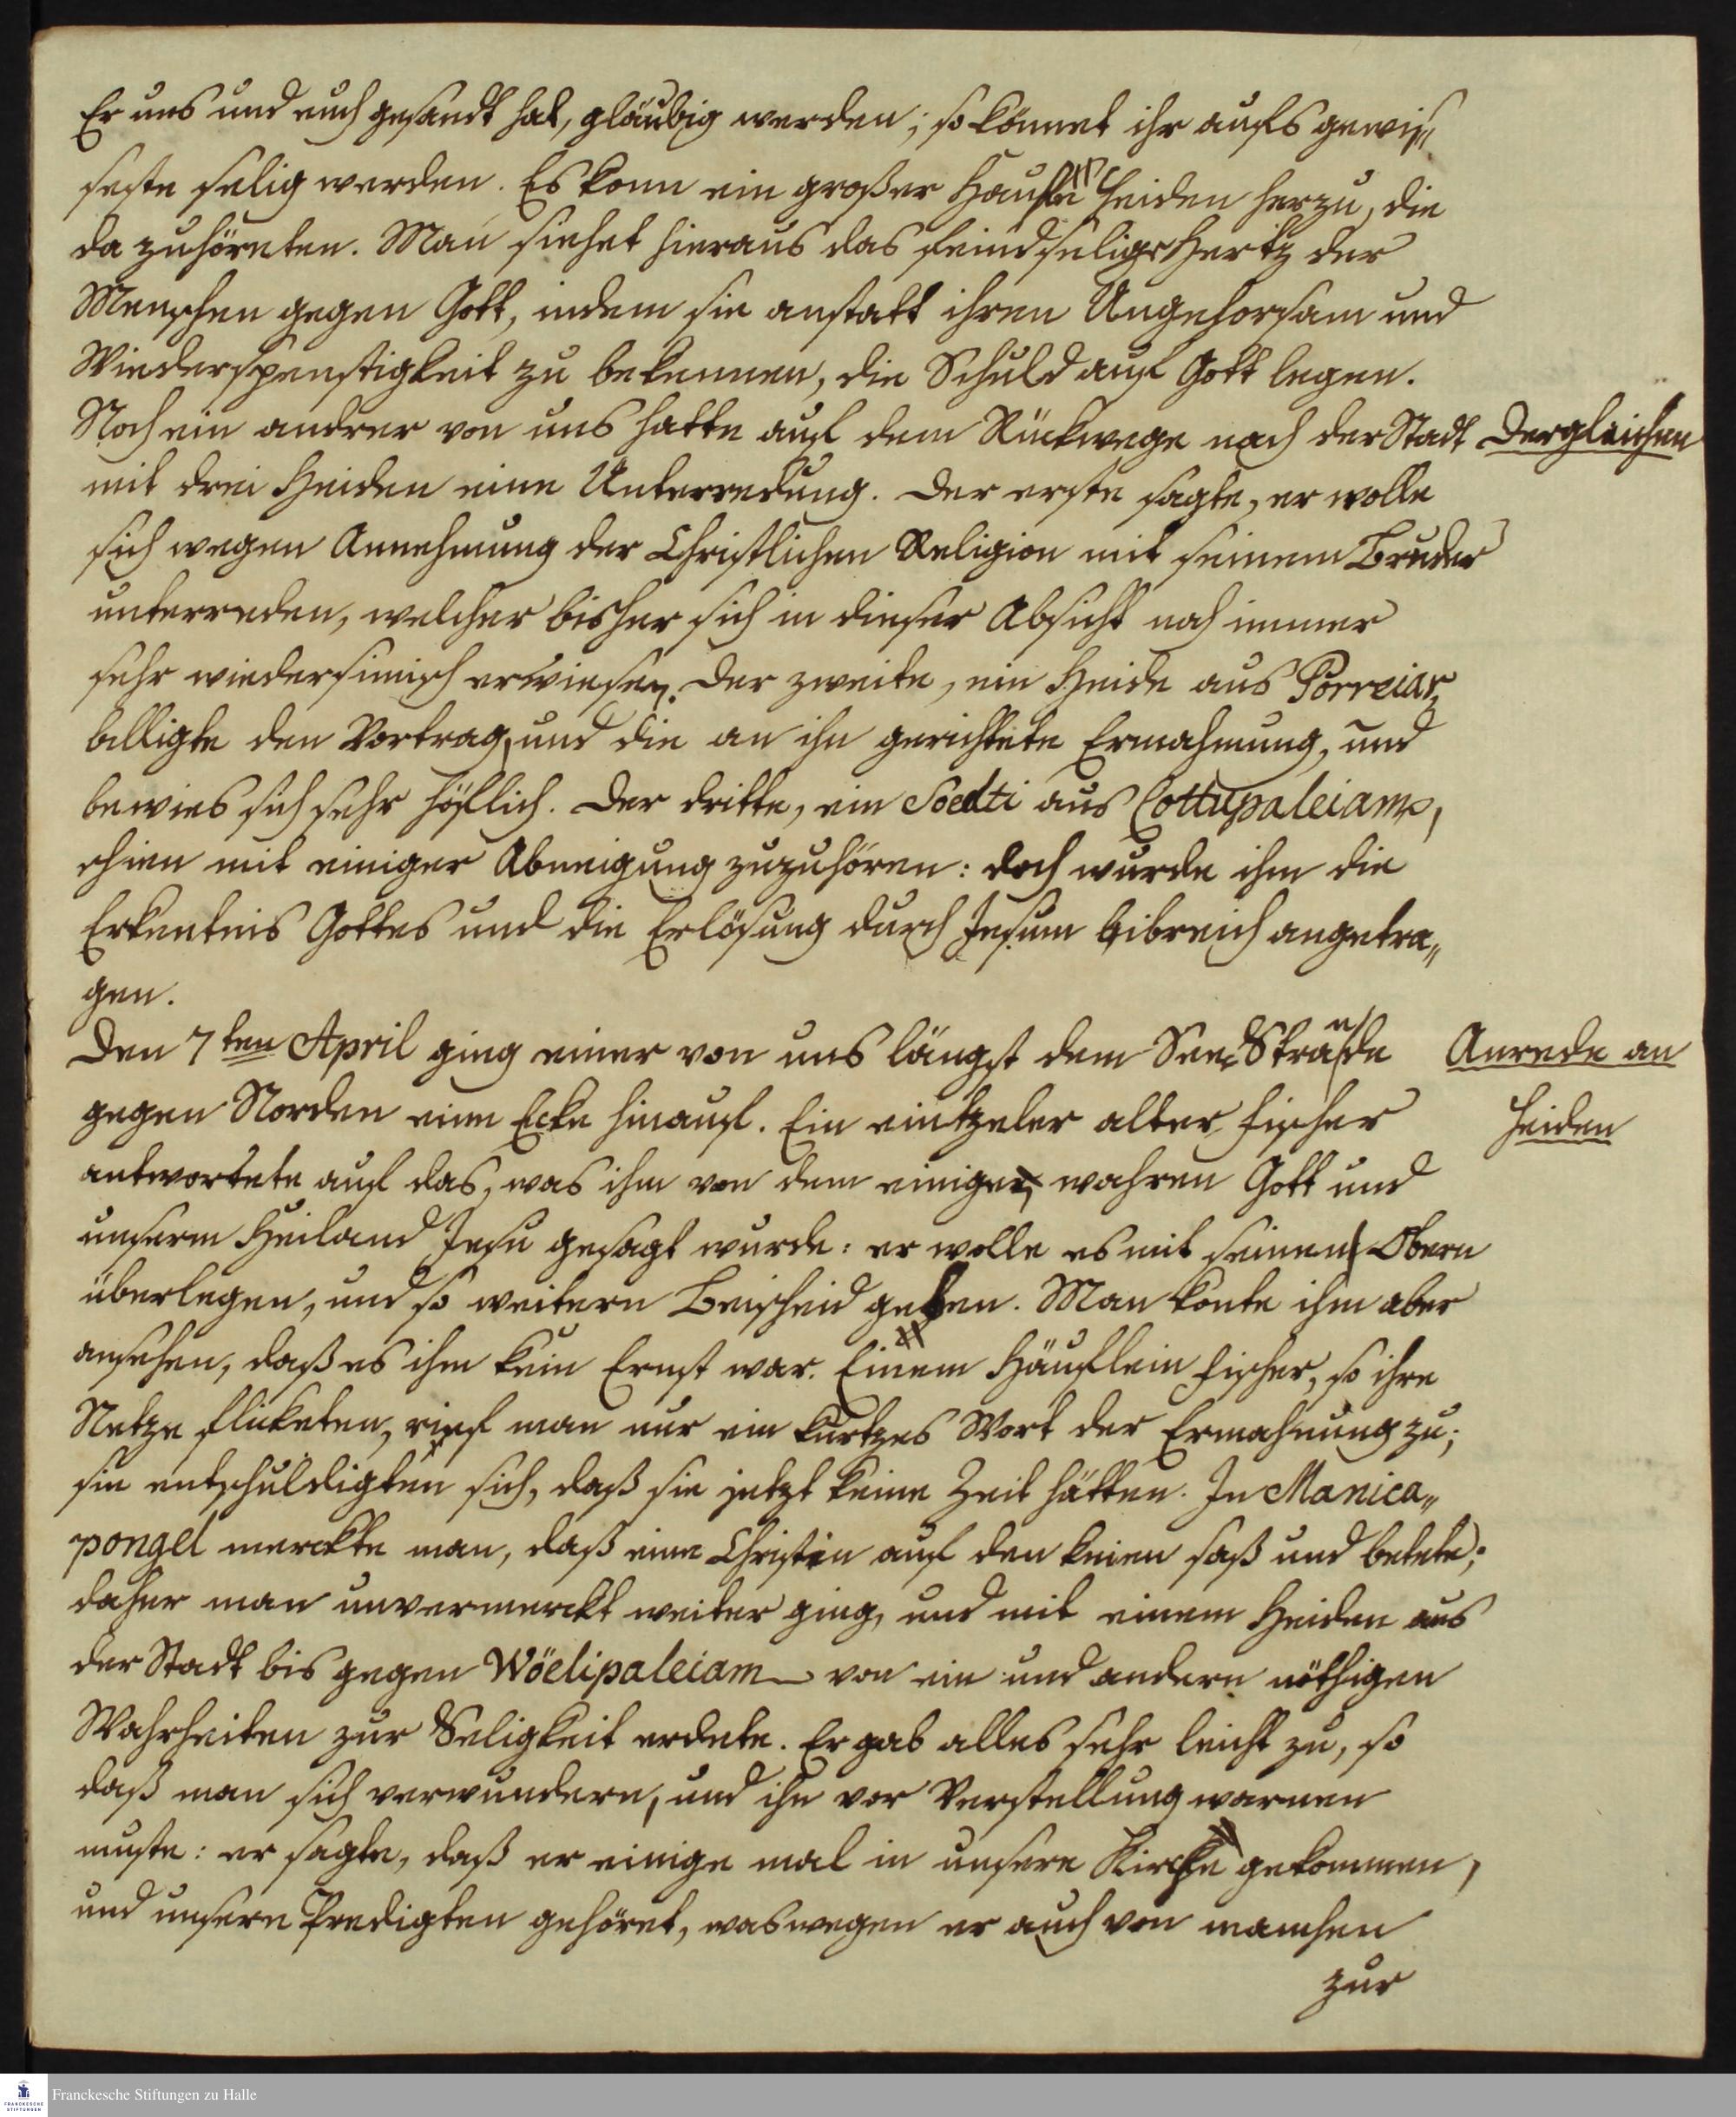 Er uns und euch gesandt hat, gläubig werden; so könnet ihr aufs gewis„
seste selig werden. Es kom ein großer Hauffen Heiden herzu, die
da zuhöreten. Man siehet hieraus das feindselige Hertz der
Menschen gegen Gott, indem sie anstatt ihren Ungehorsam und
Wiederspenstigkeit zu bekennen, die Schuld auf Gott legen.
Noch ein andrer von uns hatte auf dem Rückwege nach der Stadt
dergleichen
mit drei Heiden eine Unterredung. Der erste sagte, er wolle
sich wegen Annehmung der Christlichen Religion mit seinem Bruder
unterreden, welcher bisher sich in dieser Absicht noch immer
sehr wiedersinnisch erwiesen. Der zweite, ein Heide aus Porreiar,
billigte den Vortrag, und die an ihn gerichtete Ermahnung, und
bewies sich sehr höflich. Der dritte, ein Soetti aus Cottupaleiam,
schien mit einiger Abneigung zuzuhören: doch wurde ihm die
Erkentnis Gottes und die Erlösung durch Jesum libreich angetra„
gen.
Den 7ten April ging einer von uns längst dem See-Strande
Anrede an
Heiden
gegen Norden eine Ecke hinauf. Ein eintzeler alter Fischer
antwortete auf das, was ihm von dem einigen wahren Gott und
unserm Heiland Jesu gesagt wurde: er wolle es mit seinen Obern
überlegen, und so weitern Beischeid geben. Man konte ihm aber
ansehen, daß es ihm kein Ernst war. Einem Häuflein Fischer, so ihre
Netze flicketen, rief man nur ein kurtzes Wort der Ermahnung zu;
sie entschuldigten sich, daß sie jetzt keine Zeit hätten. In Manica„
pongel merckte man, daß eine Christin auf den knien saß und betete;
daher man unvermerckt weiter ging, und mit einem Heiden aus
der Stadt bis gegen Wöelipaleiam von ein und andern nöthigen
Wahrheiten zur Seligkeit erdete. Er gab alles sehr leicht zu, so
daß man sich verwundern, und ihn vor Verstellung warnen
muste: er sagte, daß er einige mal in unsere Kirche gekommen,
und unsere Predigten gehöret, weswegen er auch von manchen
zur
Franckesche Stiftungen zu Halle
FRANCKESCHE
STIFTUNGEN